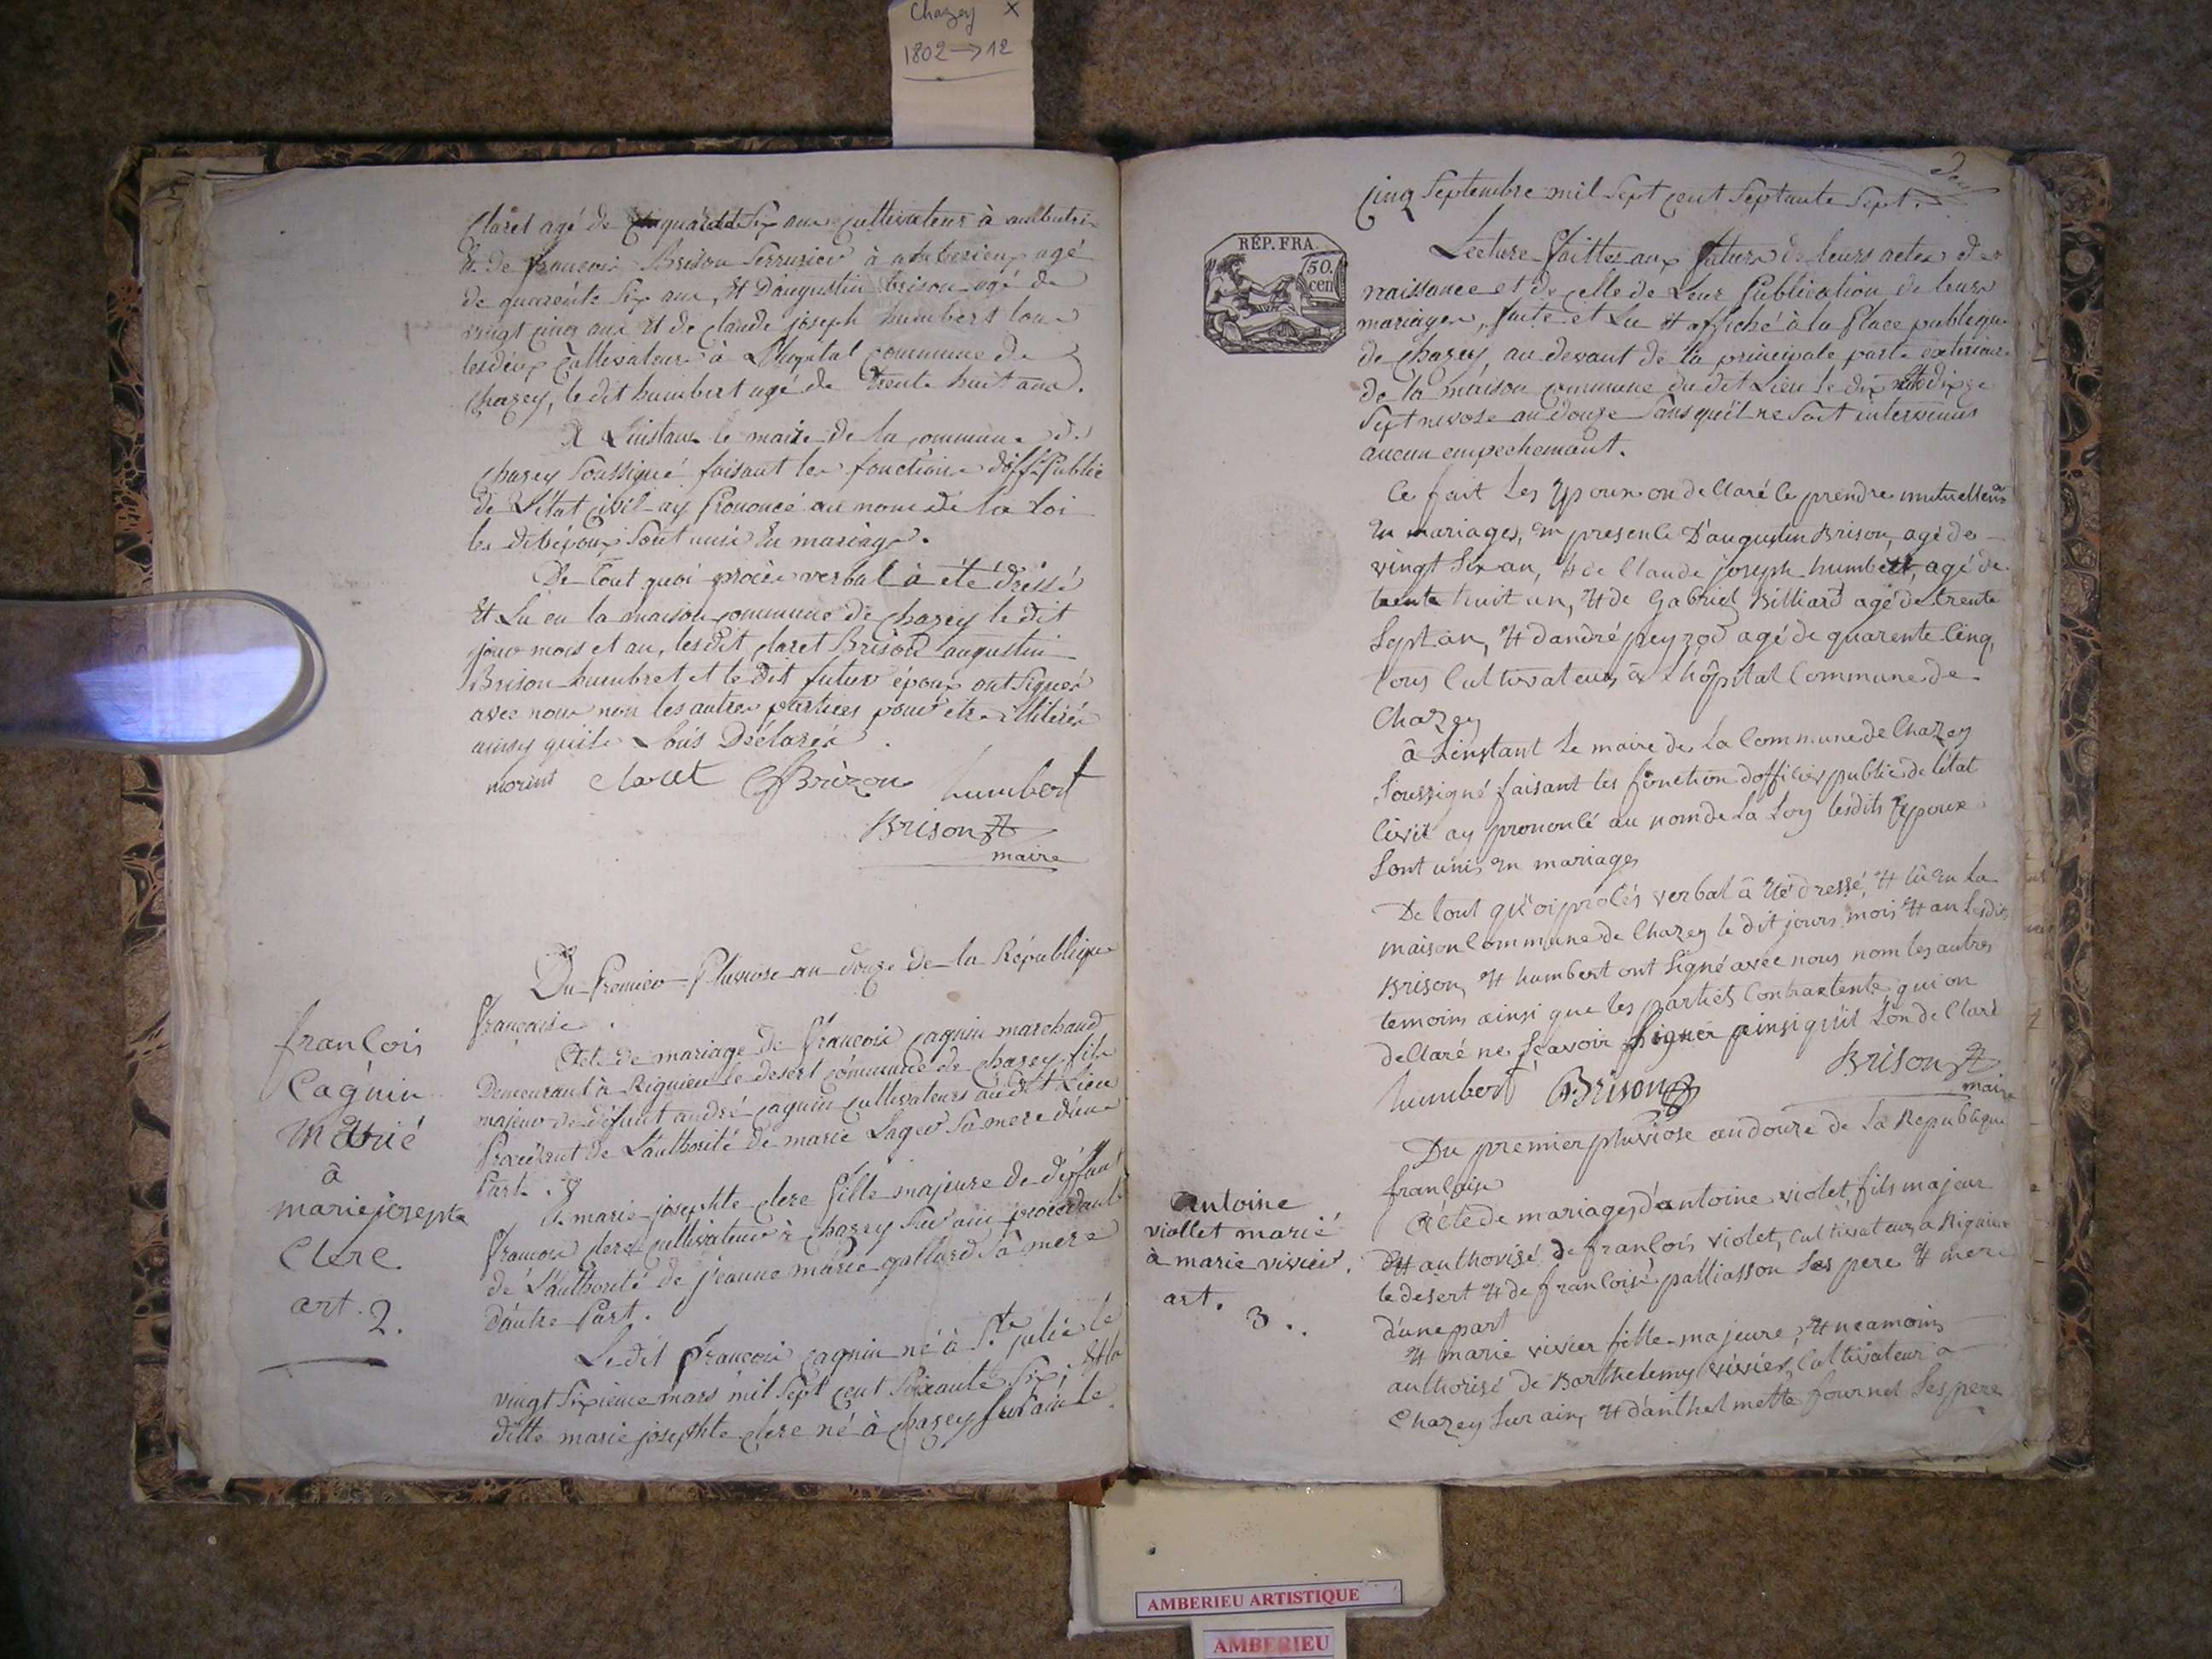 Chazey X
1802 → 12
Claret agé de quarante six ans cultivateur à
& de françois Brison serrurier à amberieux agé
de quarente six ans, Et D'augustin brison agé de
vingt cinq ans Et de claude joseph humbert tous
lesdeux Cultivateurs à L'hopital commune de
chazey, le dit humbert agé de trente huit ans.
A Linstant le maire de la commune de
chazey Soussigné faisant les fonctions d'off. Public
de L'état Civil ay Prononcé au nom de la loi
les dits époux sont unis En mariage.
De Tout quoi procès verbal à été dressé
Et Lu en la maison commune de chazey le dit
jour mois et an, lesdit claret Brison augustin
Brison humbret et le dit futur époux ont signés
avec nous non les autres parties pour être illitérés
ainsy quils Lons Déclarés.
morint Claret Brizon humbert
Brison
maire
Du Premier Pluviose an douze de la République
française.
françois
Cagnin
Marié
à
marie josephte
Clerc
art. 2.
Acte de mariage de françois cagnin marchand
Demeurant à Rignieu le desert commune de chazey fils
majeur de défunt andré cagnin cultivateurs au dit Lieu
Procédant de L'authorité de marie Lager sa mere d'une
Part. Et
& marie josephte clerc fille majeure de deffunt
françois clerc cultivateur à chazey sur ain procédant
de L'authorité de jeanne marie gallard sa mere
d'autre Part.
Le dit françois cagnin né à Ste julie le
vingt sixieme mars mil sept cent soixante six, Et la
ditte marie josephte clerc né à chazey sur ain le
deux
cinq septembre mil sept cent septante sept.
RÉP. FRA.
50.
cen
Lecture faittes aux futurs de leurs actes de
naissance et de celle de Leur Publication de leurs
mariages, faite et Lu & affiché à la place publique
de chazey, au devant de la principale porte exterieure
de la maison commune du dit Lieu le dix et dix
sept nivose an douze sans qu'il ne soit intervenus
aucun empechemant.
Ce fait Les Epoux on declaré ce prendre mutuellem
En mariages, En presence D'augustin Brison, agé de
vingt six an, & de Claude joseph humbert, agé de
trente huit an, & de Gabriel Billiard agé de trente
sept an, & d'andré peyzod agé de quarente cinq,
tous Cultivateurs à Lhôpital Commune de
Chazey
à Linstant Le maire de La Commune de Chazey
soussigné faisant les fonction d'officier public de l'état
Civil ay prononcé au nom de La Loy lesdits Epoux
sont unis En mariages
De tout qu'oi procés verbal à été dressé, & lû En La
maison Commune de Chazey le dit jours mois & an Lesdits
Brison, & humbert ont signé avec nous nom les autres
temoins ainsi que les partiés Contractente qui on
declaré ne sçavoir signer ainsi qu'il Lon de Claré
humbert Brison Brison
maire
Du premier pluviose an douze de La Republique
française
Antoine
viollet marié
à marie vivier.
art. 3.
Acte de mariages d'antoine violet, fils majeur
& authorisé de françois violet, Cultivateur, a Rignieux
le desert & de francoise palliasson Ses pere & mere
d'une part
& marie vivier fille majeure, & neamoins
authorisé de Barthelemy vivier, Cultivateur a
Chazey sur ain, & d'anthelmette fournet Ses pere
AMBERIEU ARTISTIQUE
AMBERIEU